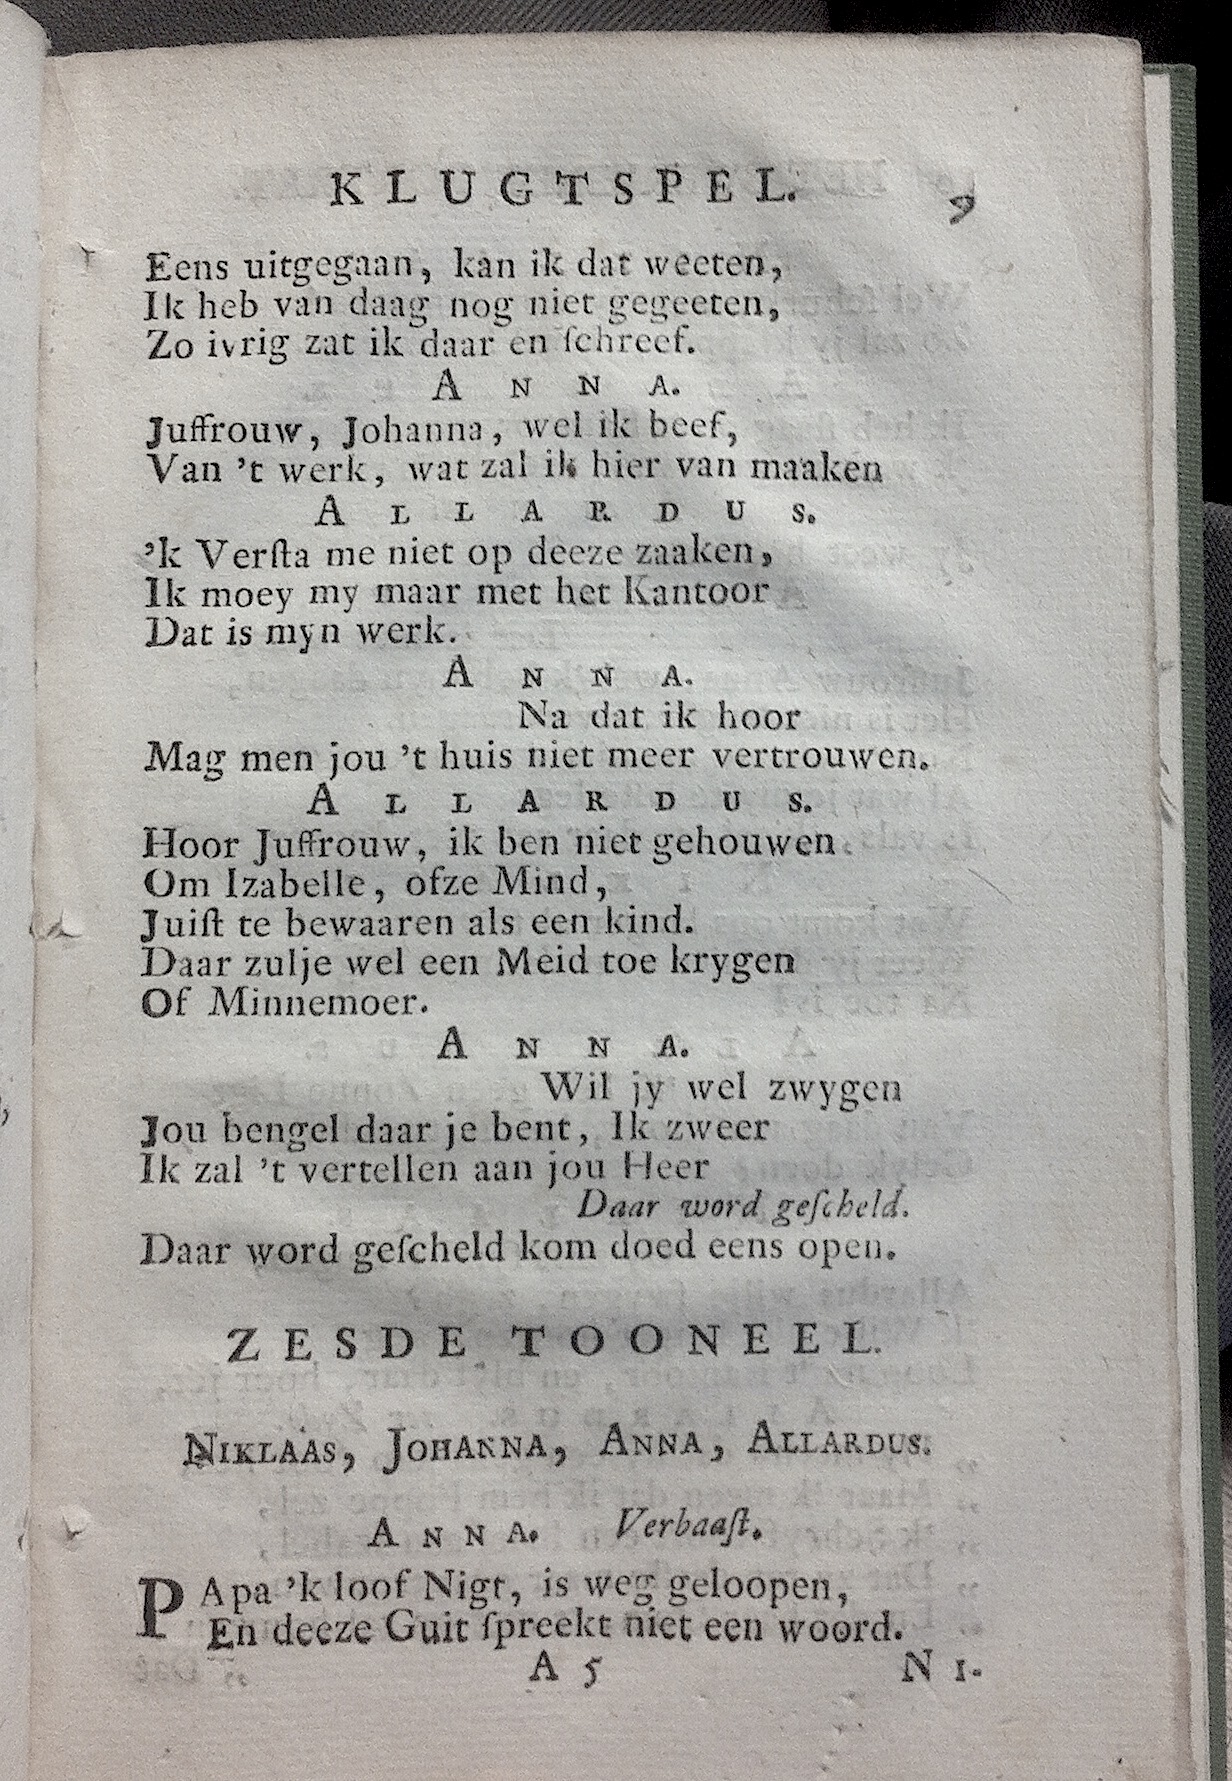 KLUGTSPEL. 9
Eens uitgegaan, kan ik dat weeten,
Ik heb van daag nog niet gegeeten,
Zo ivrig zat ik daar en ſchreef.
ANNA.
Juffrouw, Johanna, wel ik beef,
Van 't werk, wat zal ik hier van maaken
ALLARDUS.
'k Verſta me niet op deeze zaaken,
Ik moey my maar met het Kantoor
Dat is myn werk.
ANNA.
Na dat ik hoor
Mag men jou 't huis niet meer vertrouwen.
ALLARDUS.
Hoor Juffrouw, ik ben niet gehouwen
Om Izabelle, ofze Mind,
Juiſt te bewaaren als een kind.
Daar zulje wel een Meid toe krygen
Of Minnemoer.
ANNA.
Wil jy wel zwygen
Jou bengel daar je bent, Ik zweer
Ik zal 't vertellen aan jou Heer
Daar word geſcheld.
Daar word geſcheld kom doed eens open.
ZESDE TOONEEL.
NIKLAAS, JOHANNA, ANNA, ALLARDUS.
ANNA. Verbaaſt.
PApa 'k loof Nigt, is weg geloopen,
En deeze Guit ſpreekt niet een woord.
A 5 NI.